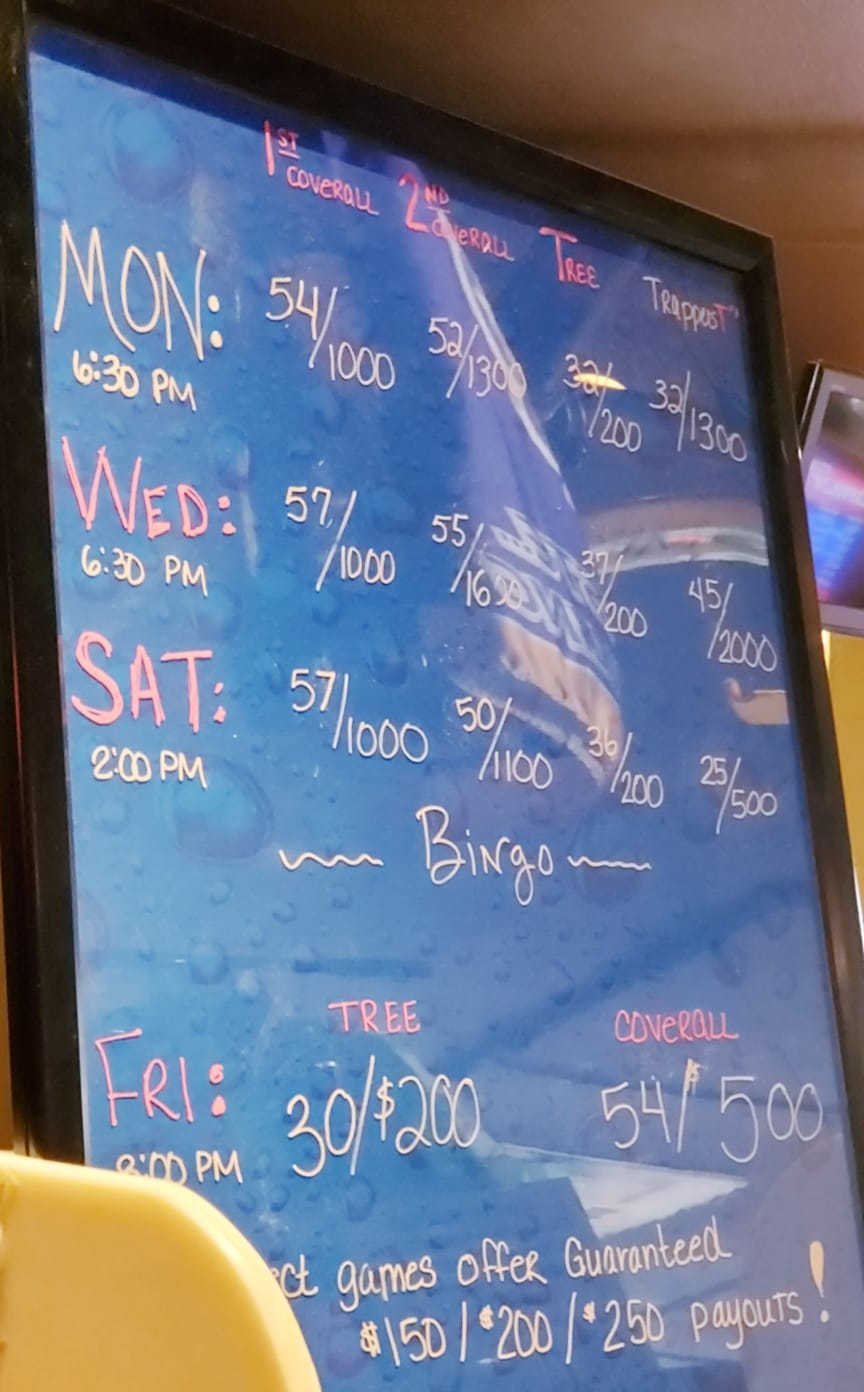 1ST COVERALL 2ND COVERALL TREE TRAPPERST"
MON: 54/1000 52/1300 32/200 32/1300
6:30 PM
WED: 57/1000 55/1600 37/200 45/2000
6:30 PM
SAT: 57/1000 50/1100 36/200 25/500
2:00 PM
Bingo
TREE COVERALL
FRI: 30/$200 54/$500
:00 PM
games offer Guaranteed
$150/$200/$250 payouts!